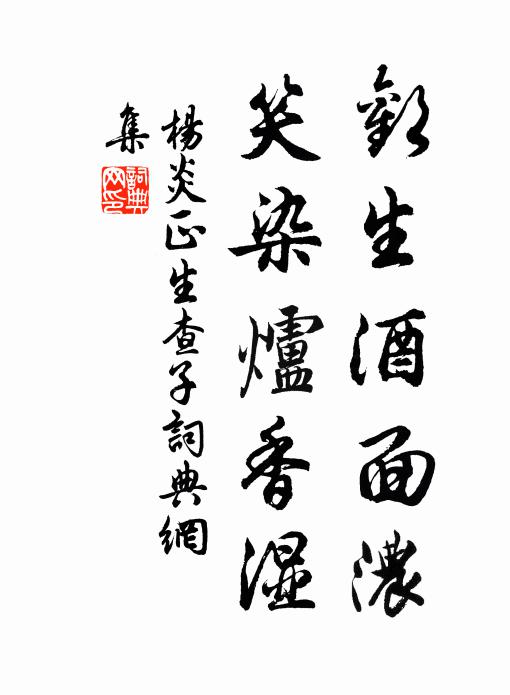 歡生酒面濃
笑染爐香濕
楊炎正生查子詞典網
集
詞典
网印